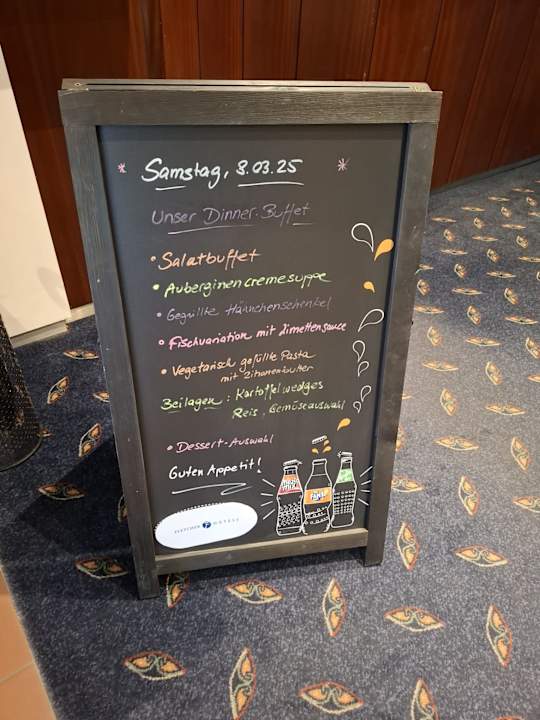 * Samstag, 8.03.25 *
Unser Dinner-Buffet
• Salatbuffet
• Auberginencremesuppe
• Gegrillte Hähnchenschenkel
• Fischvariation mit Limettensauce
• Vegetarisch gefüllte Pasta
mit Zitronenbutter
Beilagen: Kartoffelwedges
Reis, Gemüseauswahl
• Dessert-Auswahl
Guten Appetit!
FLETCHER HOTELS